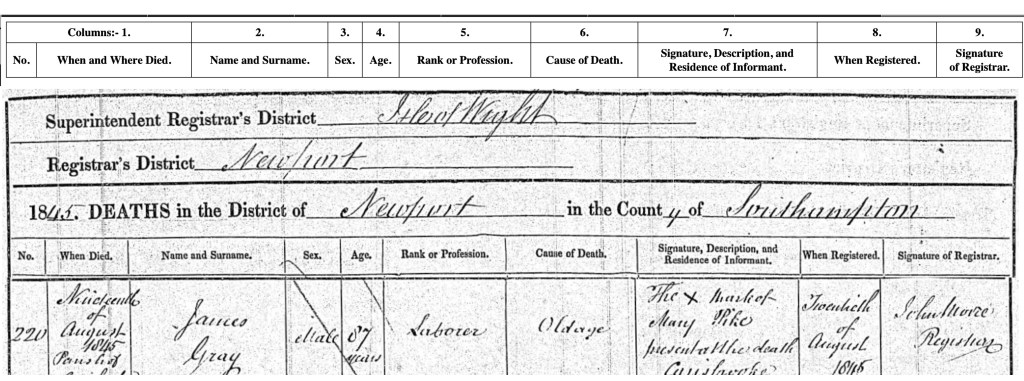 Columns:- 1. 2. 3. 4. 5. 6. 7. 8. 9.
No. When and Where Died. Name and Surname. Sex. Age. Rank or Profession. Cause of Death. Signature, Description, and Residence of Informant. When Registered. Signature of Registrar.
Superintendent Registrar's District Isle of Wight
Registrar's District Newport
1845. DEATHS in the District of Newport in the County of Southampton
No. When Died. Name and Surname. Sex. Age. Rank or Profession. Cause of Death. Signature, Description, and Residence of Informant. When Registered. Signature of Registrar.
220
Nineteenth
of
August
1845
Parish of
James
Gray
Male
87
years
Laborer
Old age
The X mark of
Mary Pike
present at the death
Carisbrooke
Twentieth
of
August
1845
John Moore
Registrar